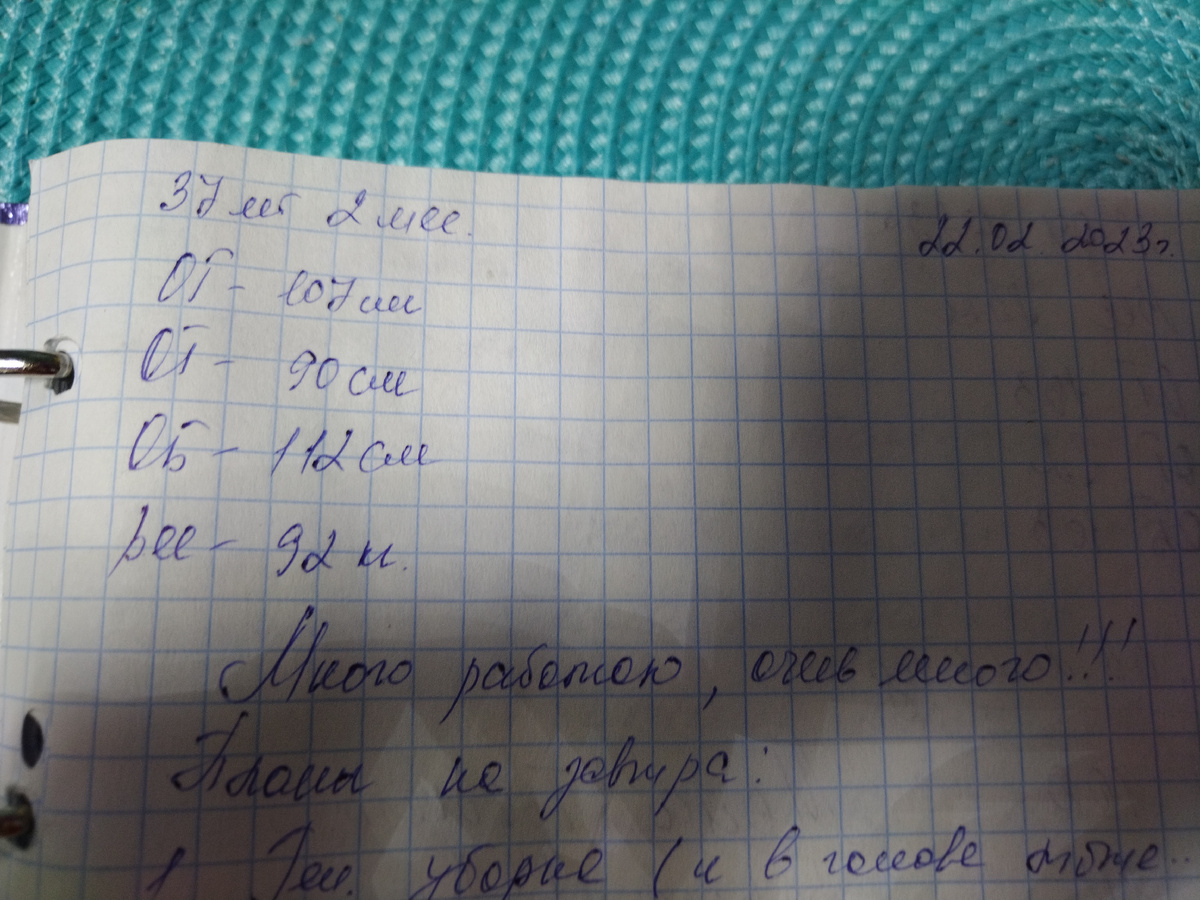 37 лет 2 мес. 22.02.2023г.
ОГ - 107 см
ОТ - 90 см
ОБ - 112 см
Вес - 92 кг.
Много работаю, очень много!!!
Планы на завтра:
1 Ген. уборка (и в голове тоже...